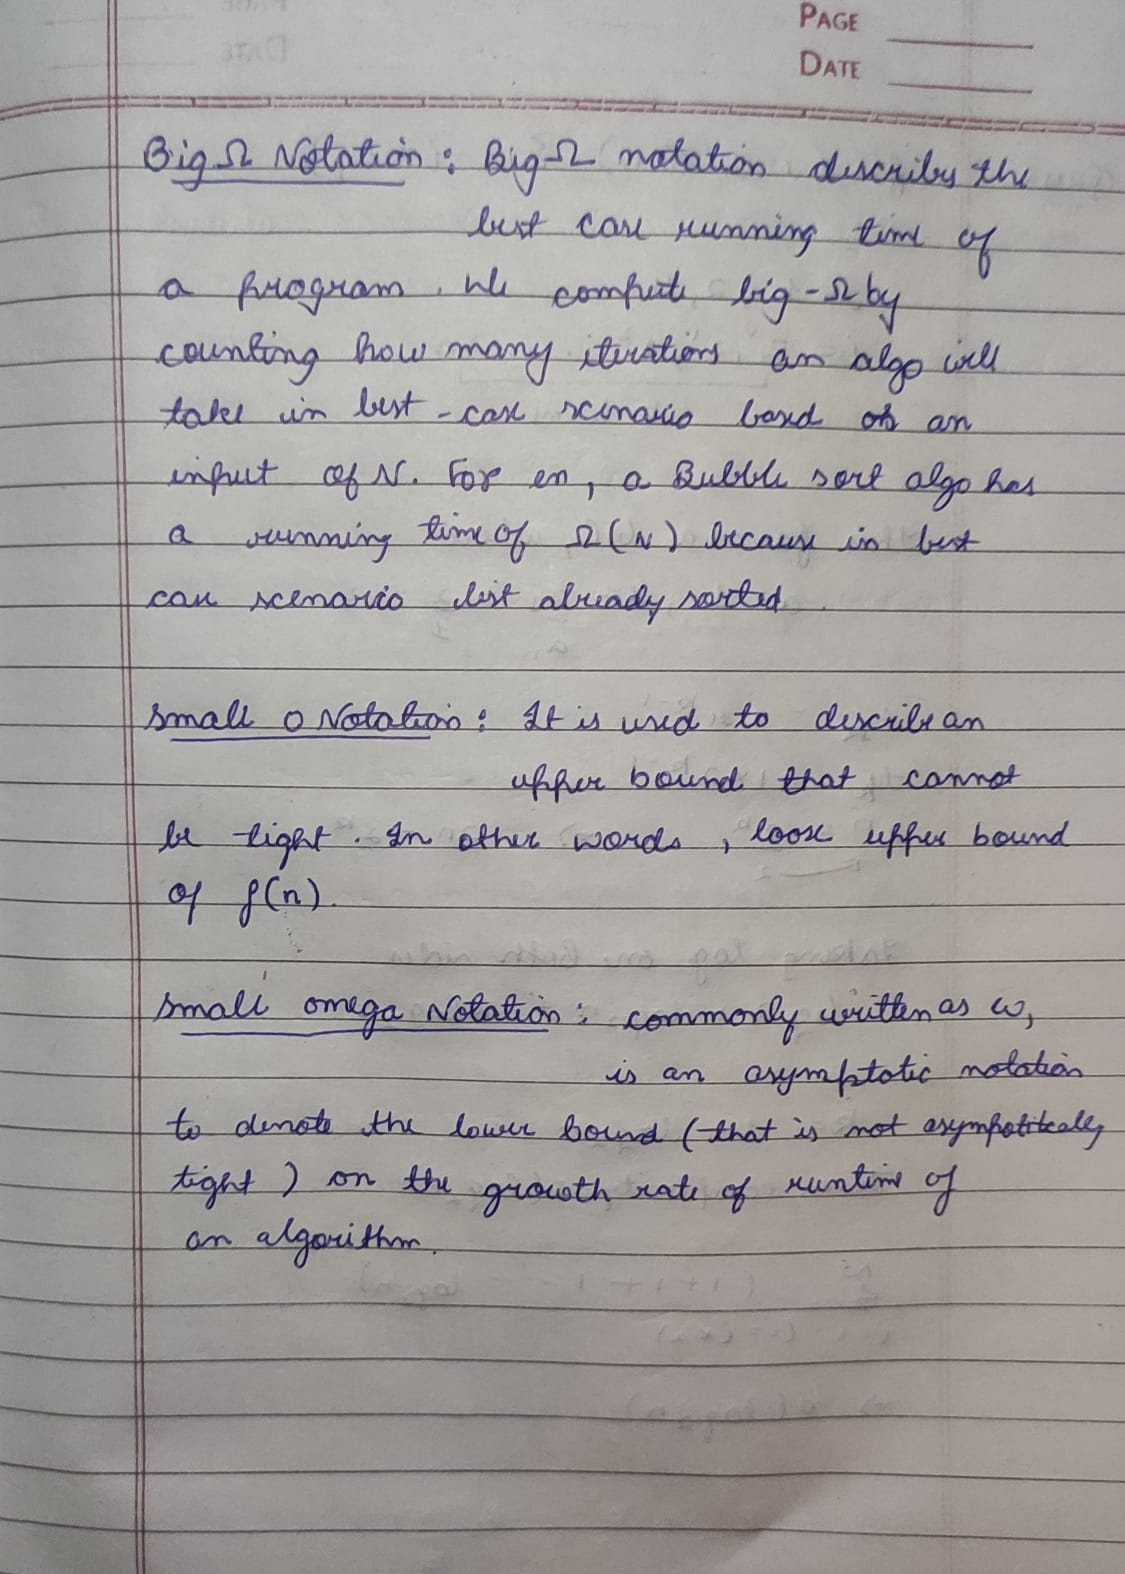 PAGE
DATE
Big Ω Notation : Big-Ω notation describes the
best case running time of
a program. We compute big-Ω by
counting how many iterations an algo will
take in best-case scenario based on an
input of N. For en, a Bubble sort algo has
a running time of Ω(N) because in best
case scenario list already sorted.
Small o Notation : It is used to describe an
upper bound that cannot
be tight. In other words, loose upper bound
of f(n).
Small omega Notation : commonly written as ω,
is an asymptotic notation
to denote the lower bound (that is not asympotitcally
tight) on the growth rate of runtime of
an algorithm.